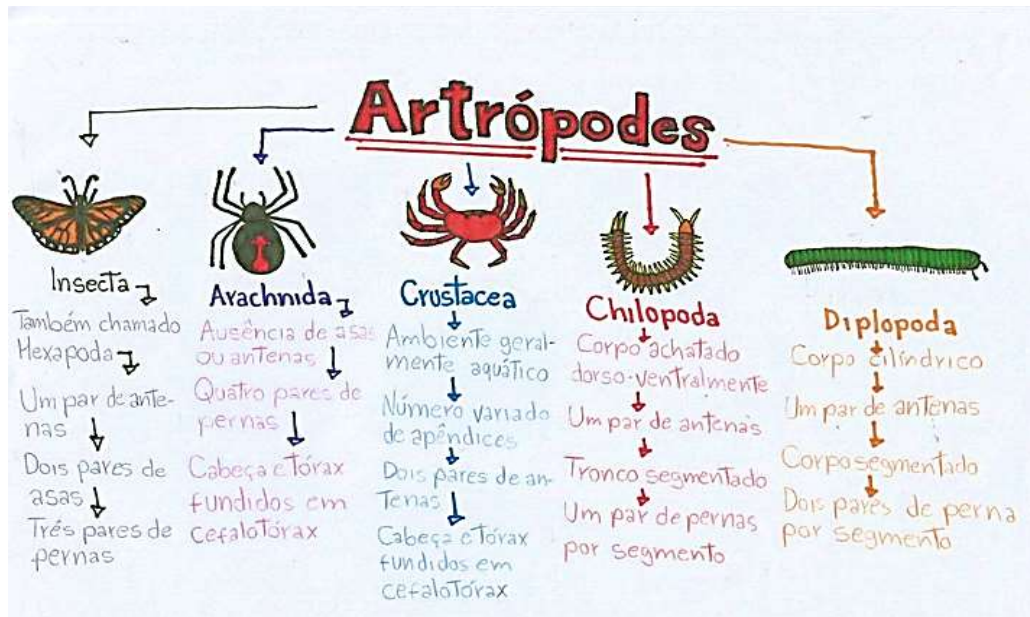 Artrópodes
Insecta
Também chamado
Hexapoda
Um par de ante-
nas
Dois pares de
asas
Três pares de
pernas
Arachnida
Ausência de asas
ou antenas
Quatro pares de
pernas
Cabeça e Tórax
fundidos em
cefaloTórax
Crustacea
Ambiente geral-
mente aquático
Número variado
de apêndices
Dois pares de an-
tenas
Cabeça e Tórax
fundidos em
cefaloTórax
Chilopoda
Corpo achatado
dorso-ventralmente
Um par de antenas
Tronco segmentado
Um par de pernas
por segmento
Diplopoda
Corpo cilíndrico
Um par de antenas
Corpo segmentado
Dois pares de perna
por segmento